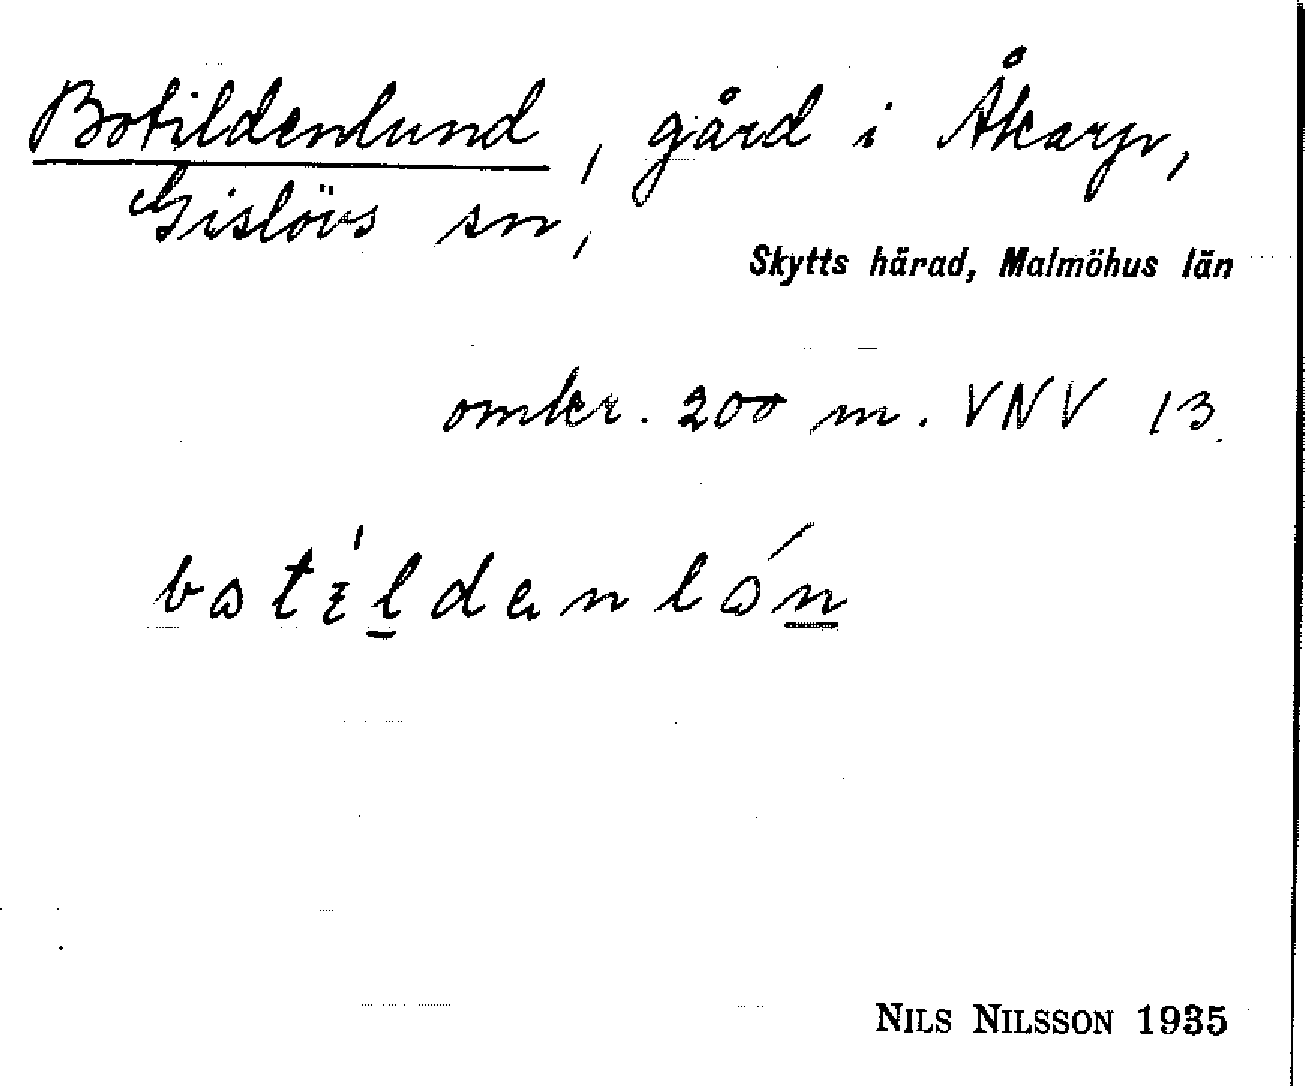 Botildenlund, gård i Åkarp,
Gislövs sn,
Skytts härad, Malmöhus län
omkr. 200 m. VNV 13.
botildanlón
NILS NILSSON 1935